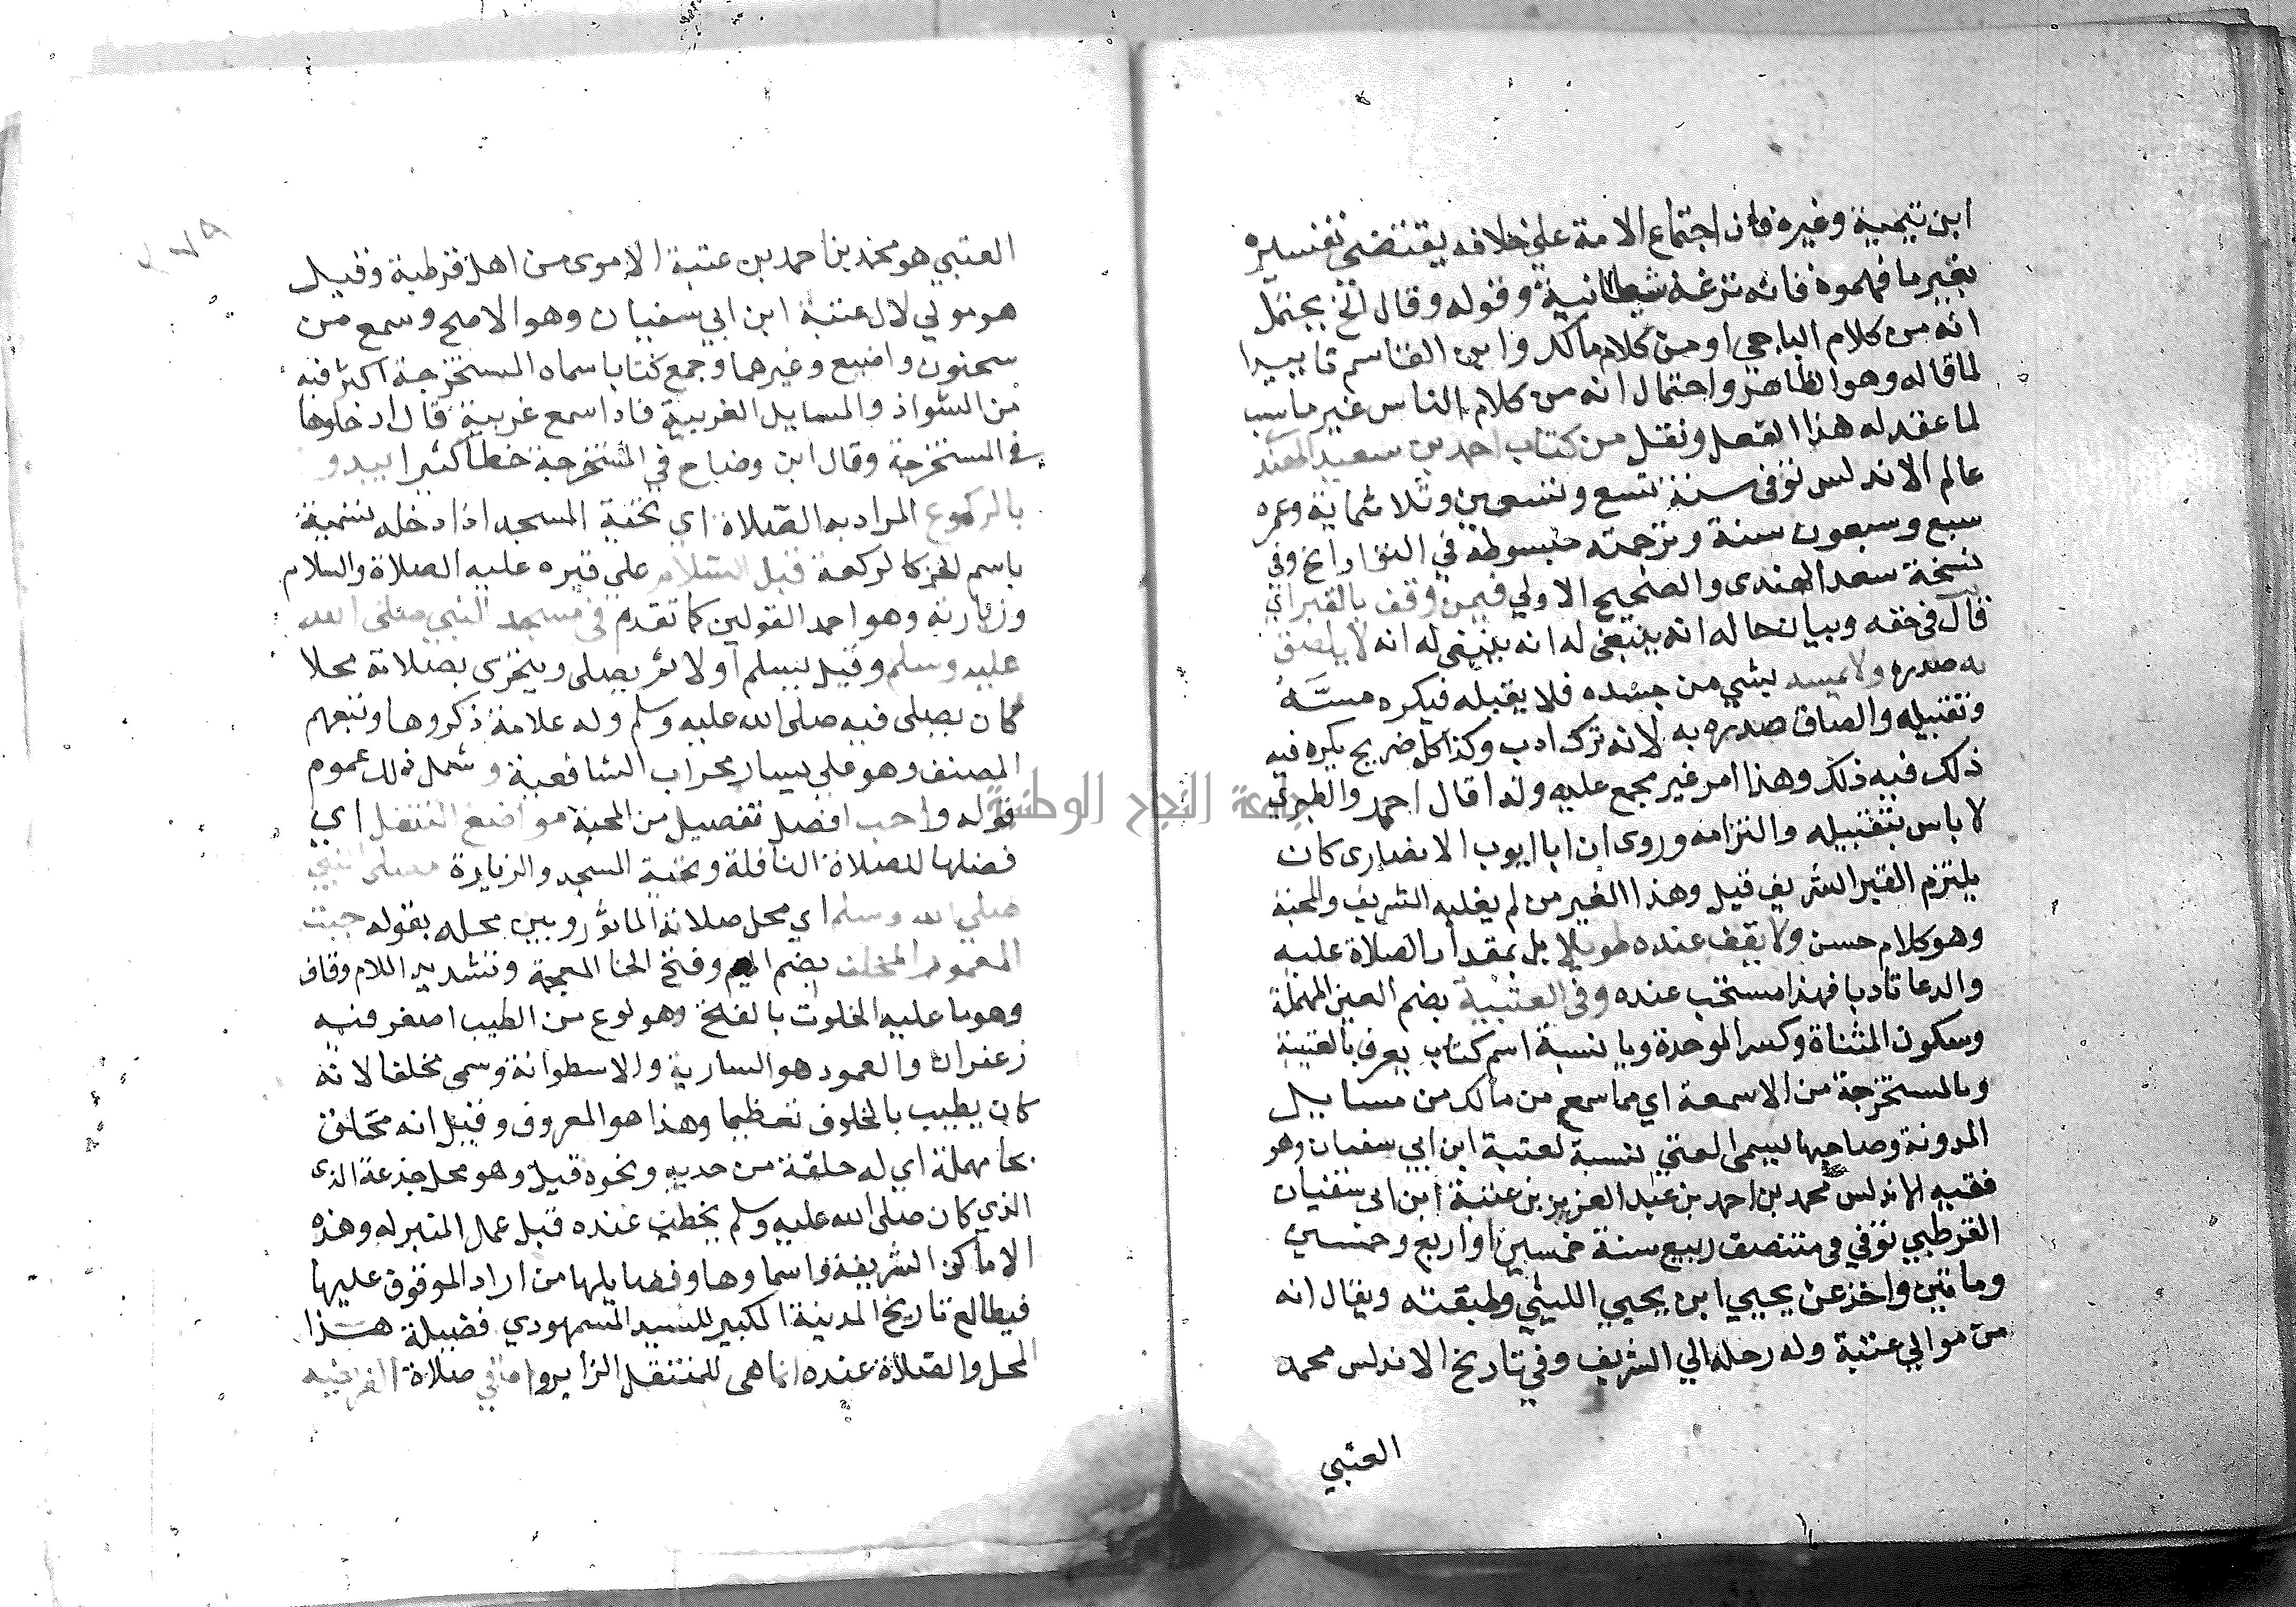 ابن تيمية وغيره فان اجتماع الامة علي خلافه يقتضي تفسيره
بغير ما فهموه فانه نزغة شيطانية وقوله وقال الخ يحتمل
انه من كلام الباجي او من كلام مالك وابن القاسم تاييدا
لما قاله وهو الظاهر واحتمال انه من كلام الناس غير مناسب
لما عقد له هذا الفصل ونقل من كتاب احمد بن سعيد الهندي
عالم الاندلس توفي سنة تسع وتسعين وثلاثماية وعمره
سبع وسبعون سنة وترجمته مبسوطة في
نسخة سعد الهندي والصحيح الاولي فيمن وقف بالقبر اي
قال في حقه وبيان حاله انه ينبغي له انه ينبغي له انه لا يلصق
به صدره ولا يمسه بشي من جسده فلا يقبله فيكره مسه
وتقبيله والصاق صدره به لانه ترك ادب وكذا كل ضريح يكره فيه
ذلك فيه ذلك وهذا امر غير مجمع عليه ولذا قال احمد والطبري
لا باس بتقبيله والتزامه وروي ان ابا ايوب الانصاري كان
يلتزم القبر الشريف قيل وهذا الغير من لم يغلبه الشريف والمحبة
وهو كلام حسن ولا يقف عنده طويلا بل بمقدار الصلاة عليه
والدعا تادبا فهذا مستحب عنده وفي العتبية بضم العين المهملة
وسكون المثناة وكسر الموحدة ويا نسبة اسم كتاب يعرف بالعتبية
وبالمستخرجة من الاسمعة اي مما سمع من مالك من مسايل
المدونة وصاحبها يسمى العتبي نسبة لعتبة ابن ابي سفيان وهو
فقيه الاندلس محمد بن احمد بن عبد العزيز بن عتبة ابن ابي سفيان
القرطبي توفي في منتصف ربيع سنة خمسين او اربع وخمسين
ومائتين واخذ عن يحيي ابن يحيي الليثي وطبقته ويقال انه
من موالي عتبة وله رحلة الي الشريف وفي تاريخ الاندلس محمد
العتبي
العتبي هو محمد بن احمد بن عتبة الاموي من اهل قرطبة وقيل
هو مولي لال عتبة ابن ابي سفيان وهو الاصح وسمع من
سحنون واصبغ وغيرهما وجمع كتابا سماه المستخرجة اكثر فيه
من الشواذ والمسايل الغريبة فاذا سمع غريبة قال ادخلوها
في المستخرجة وقال ابن وضاح في المستخرجة خطا كثيرا يبدو
بالركوع المراد به الصلاة اي تحية المسجد اذا دخله تسمية
باسم الجز كالركعة قبل السلام علي قبره عليه الصلاة والسلام
وزيارته وهو احد القولين كما تقدم في مسجد النبي صلي الله
عليه وسلم وقيل يسلم اولا ثم يصلي ويتحرى بصلاته محلا
كان يصلي فيه صلى الله عليه وسلم وله علامة ذكروها وتبعهم
المصنف وهو علي يسار محراب الشافعية وشمل ذلك عموم
قوله واحب افضل تفصيل من المحبة مواضع التنفل اي
فضلها للصلاة النافلة وتحية المسجد والزيارة مصلى النبي
صلي الله وسلم اي محل صلاته الماثور وبين محله بقوله حيث
العمود المخلق بضم الميم وفتح الخا المعجمة وتشديد اللام وقاف
وهو ما عليه الخلوف بالفتح وهو نوع من الطيب اصفر فيه
زعفران والعمود هو السارية والاسطوانة وسمي مخلقا لانه
كان يطيب بالخلوف تعظيما وهذا هو المعروف وقيل انه محلق
بحا مهملة اي له حلقة من حديد ونحوه قيل وهو محل جذعه الذي
الذي كان صلى الله عليه وسلم يخطب عنده قبل عمل المنبر له وهذه
الاماكن الشريفة واسماوها وفضايلها من اراد الوقوف عليها
فيطالع تاريخ المدينة الكبير للسيد السمهودي فضيلة هذا
المحل والصلاة عنده انما هي للمتنفل الزاير واما في صلاة الفريضة
جامعة النجاح الوطنية